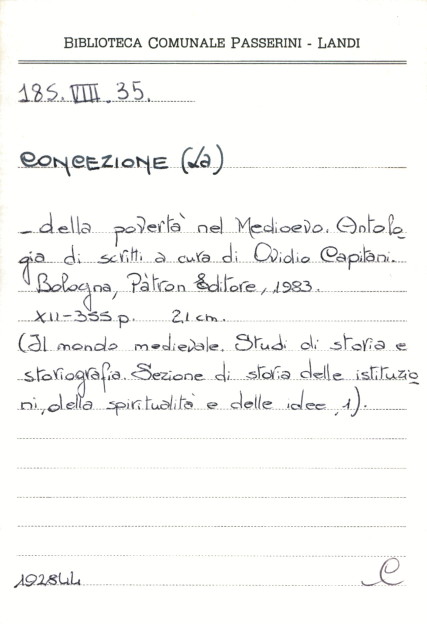 BIBLIOTECA COMUNALE PASSERINI - LANDI
185.VIII.35.
CONCEZIONE (La)
_ della povertà nel Medioevo. Antolo
gia di scritti a cura di Ovidio Capitani.
Bologna, Pàtron Editore, 1983.
XII-355 p. 21 cm.
(Il mondo medievale. Studi di storia e
storiografia. Sezione di storia delle istituzio
ni, della spiritualità e delle idee, 1).
192844
C